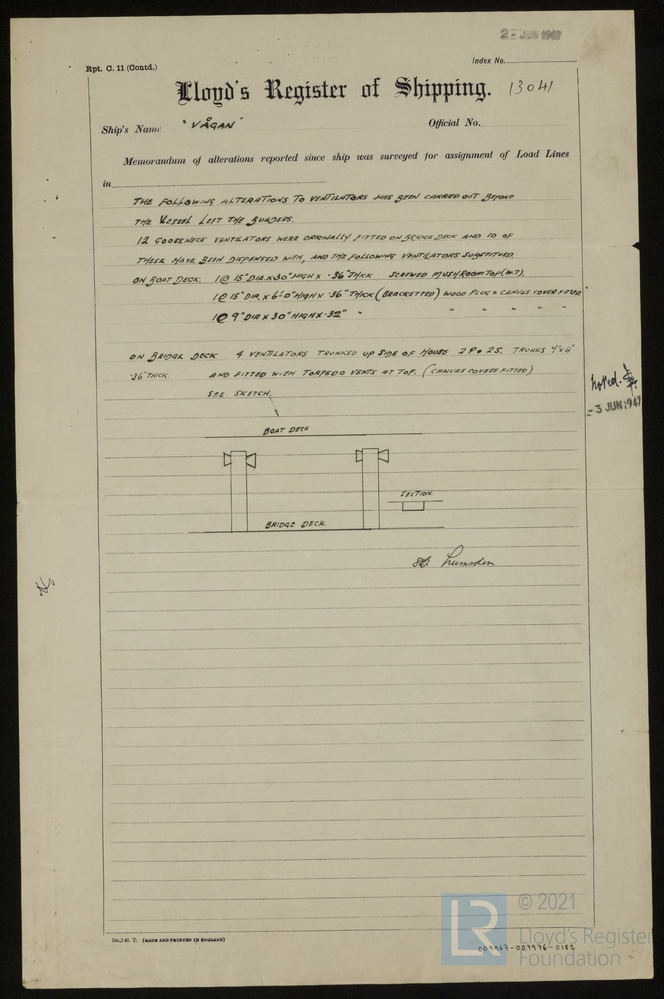 JUN 1947
Rpt. C. 11 (Contd.)
Index No.
Lloyd's Register of Shipping. 13041
Ship's Name "VÅGAN" Official No.
Memorandum of alterations reported since ship was surveyed for assignment of Load Lines
in
THE FOLLOWING ALTERATIONS TO VENTILATORS HAS BEEN CARRIED OUT BEFORE
THE VESSEL LEFT THE BUILDERS.
12 GOOSENECK VENTILATORS WERE ORIGINALLY FITTED ON BRIDGE DECK AND 10 OF
THESE HAVE BEEN DISPENSED WITH, AND THE FOLLOWING VENTILATORS SUBSTITUTED.
ON BOAT DECK. 1 @ 15" DIA. x 30" HIGH x .36" THICK SCREWED MUSHROOM TOP (W.T).
1 @ 15" DIA. x 6'-0" HIGH x .36" THICK (BRACKETTED) WOOD PLUG & CANVAS COVER FITTED
1 @ 9" DIA x 30" HIGH x .32" " " " " " "
ON BRIDGE DECK 4 VENTILATORS TRUNKED UP SIDE OF HOUSE 2 P & 2 S. TRUNKS 4" x 4"
.36" THICK. AND FITTED WITH TORPEDO VENTS AT TOP. (CANVAS COVERS FITTED)
SEE SKETCH.
noted.
- 3 JUN 1947
BOAT DECK
SECTION
BRIDGE DECK.
Lumsden
(MADE AND PRINTED IN ENGLAND)
LR
© 2021
Lloyd's Register
Foundation
007967-007976-0182